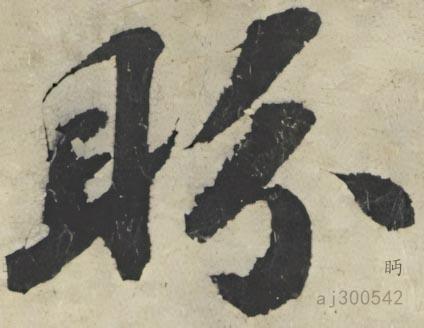 眄
眄
aj300542